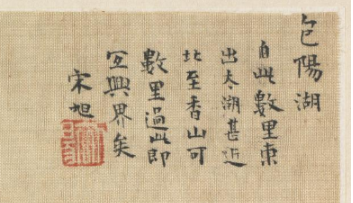 包陽湖
自此數里東
出太湖甚近
北至香山可
數里過此即
宜興界矣
宋旭